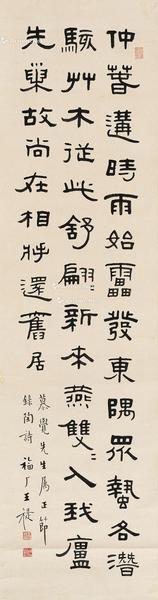 仲萅遘時雨始靁發東隅眾蟄各潛
駭艸木從此舒翩〻新來燕雙〻入我廬
先巢故尚在相將還舊居
慕覺先生屬正節
錄陶詩 福厂王禔